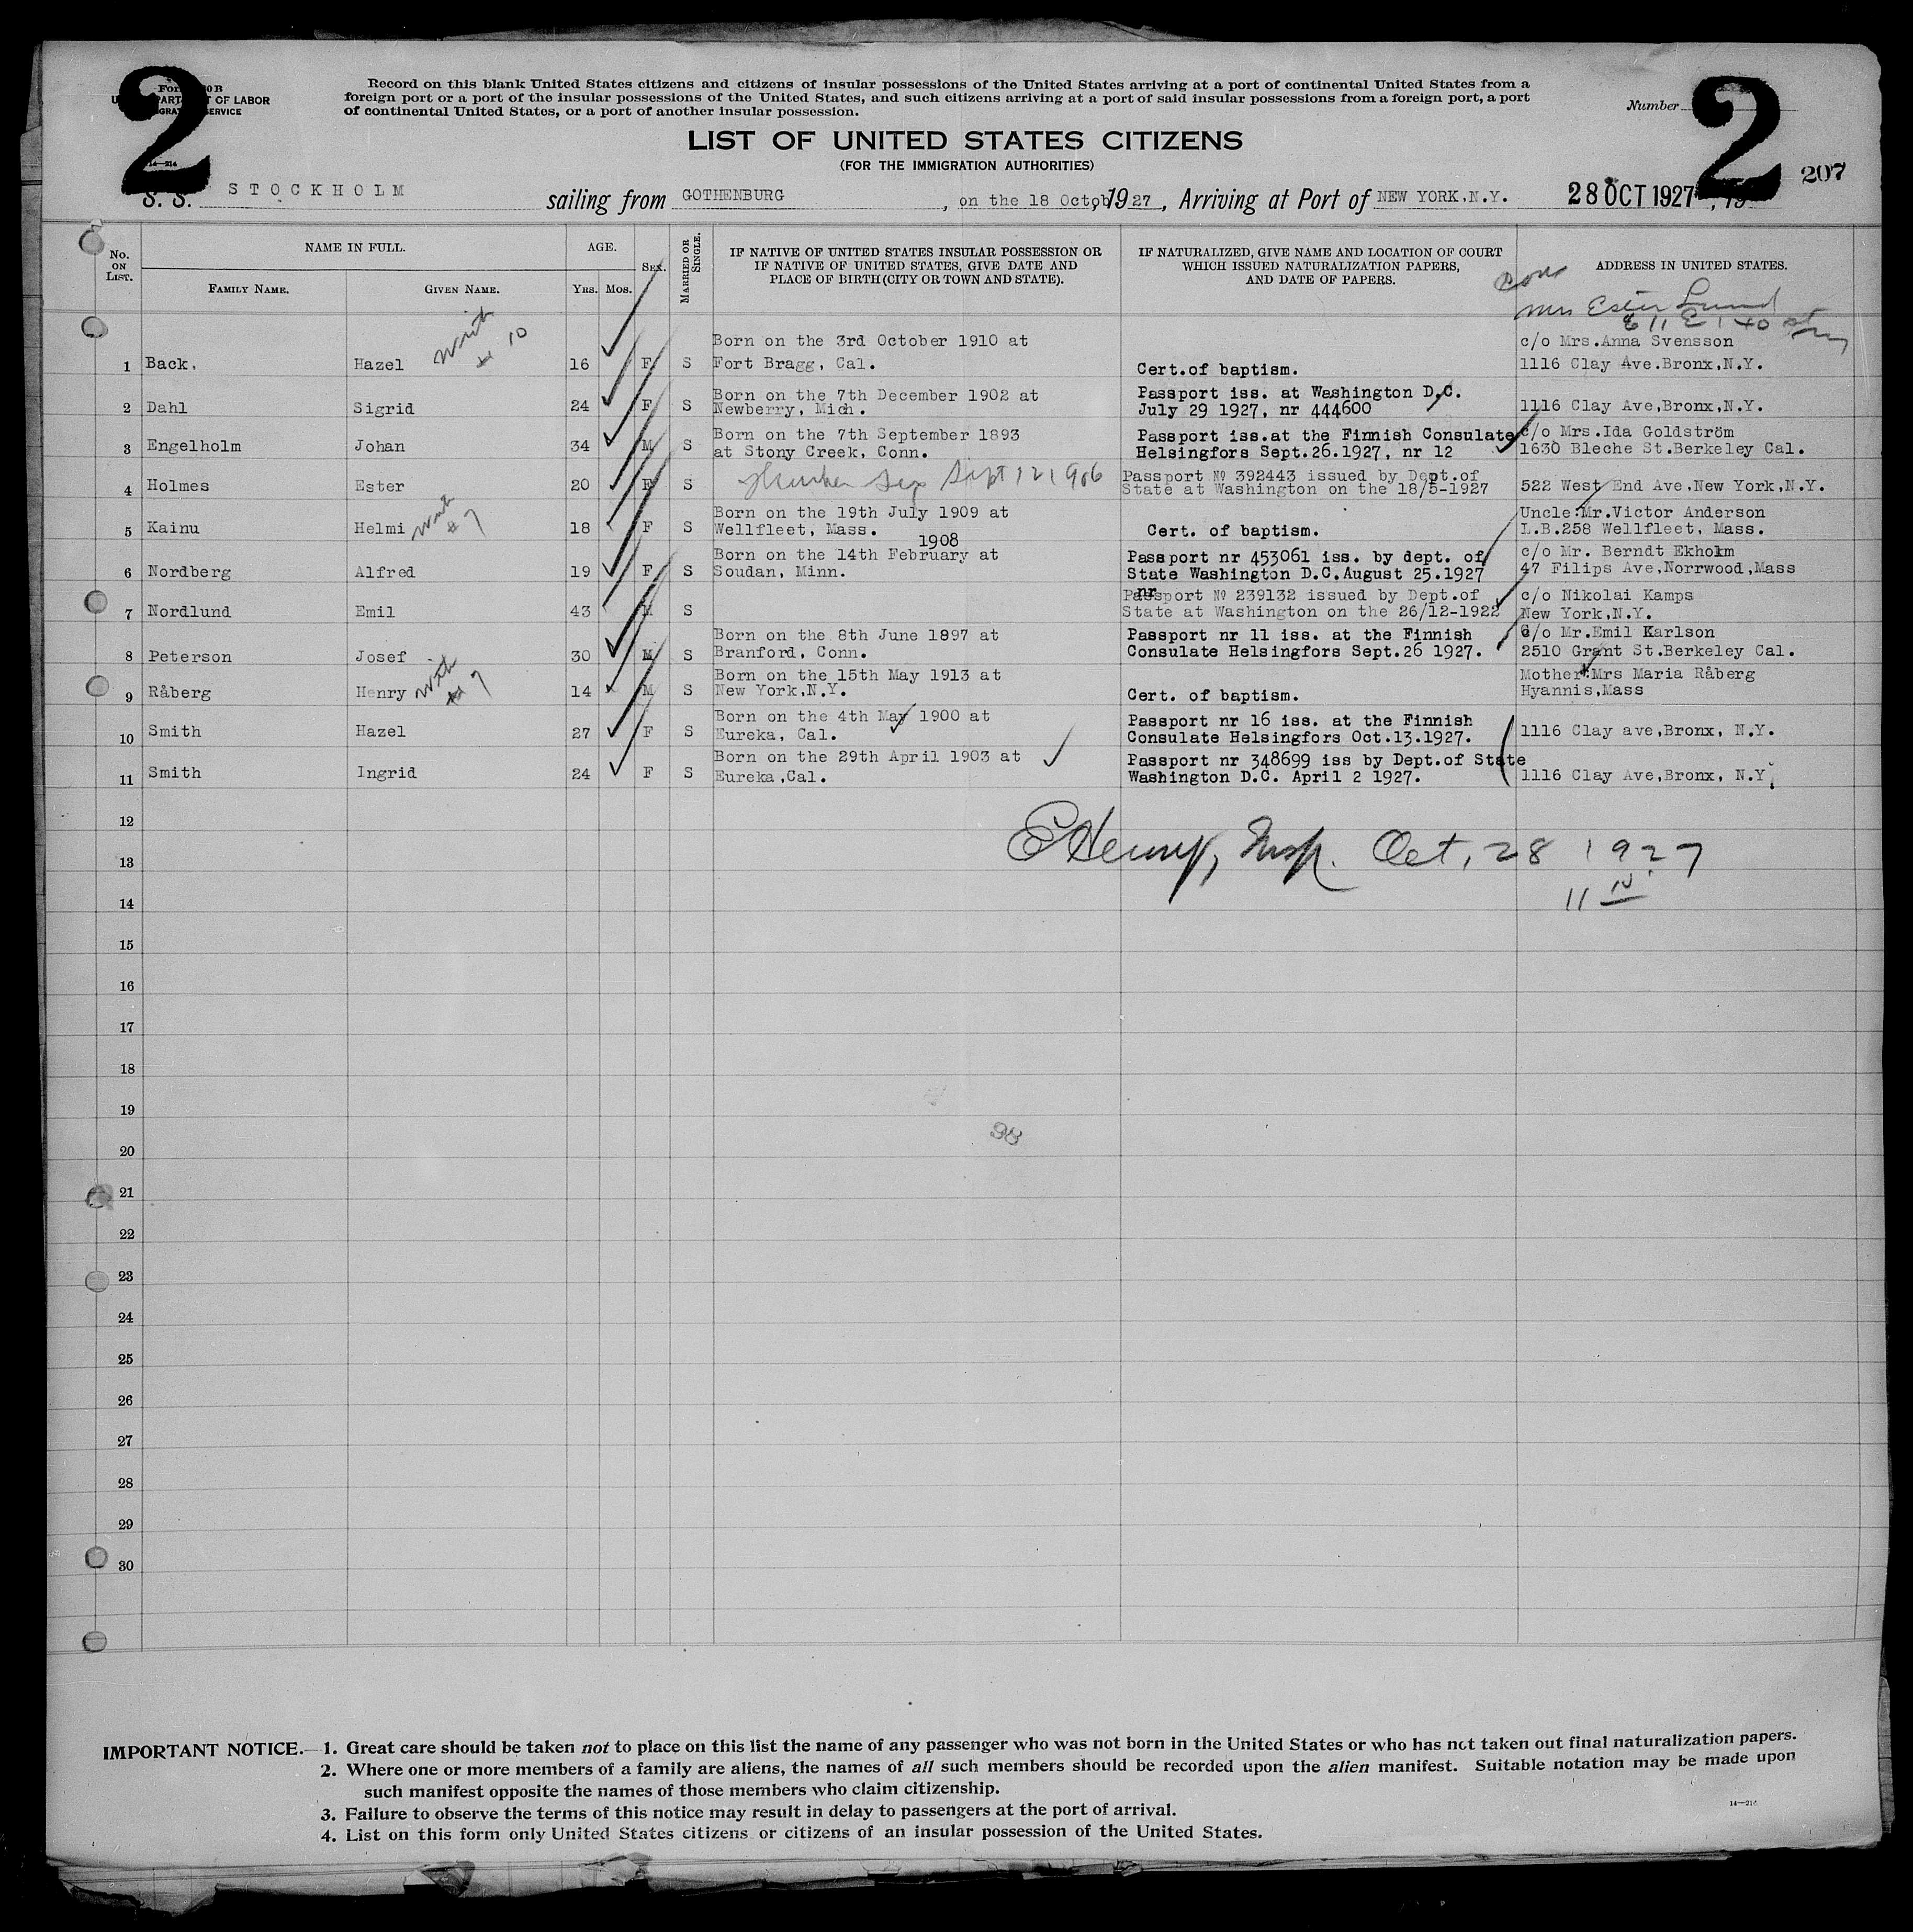 2
2
Form 630 B
U. S. DEPARTMENT OF LABOR
IMMIGRATION SERVICE
14—214
Record on this blank United States citizens and citizens of insular possessions of the United States arriving at a port of continental United States from a
foreign port or a port of the insular possessions of the United States, and such citizens arriving at a port of said insular possessions from a foreign port, a port
of continental United States, or a port of another insular possession.
Number
207
LIST OF UNITED STATES CITIZENS
(FOR THE IMMIGRATION AUTHORITIES)
S. S. STOCKHOLM sailing from GOTHENBURG, on the 18 Octob, 1927, Arriving at Port of NEW YORK,N.Y. 28 OCT 1927, 19
No. ON LIST. NAME IN FULL. AGE. SEX. MARRIED OR SINGLE. IF NATIVE OF UNITED STATES INSULAR POSSESSION OR IF NATIVE OF UNITED STATES, GIVE DATE AND PLACE OF BIRTH (CITY OR TOWN AND STATE). IF NATURALIZED, GIVE NAME AND LOCATION OF COURT WHICH ISSUED NATURALIZATION PAPERS, AND DATE OF PAPERS. ADDRESS IN UNITED STATES.
FAMILY NAME. GIVEN NAME. YRS. MOS.
Mrs Ester Lund
611 E 140 st
1 Back, Hazel with # 10 16 F S Born on the 3rd October 1910 at Fort Bragg, Cal. Cert.of baptism. c/o Mrs.Anna Svensson 1116 Clay Ave.Bronx,N.Y.
2 Dahl Sigrid 24 F S Born on the 7th December 1902 at Newberry, Mich. Passport iss. at Washington D.C. July 29 1927, nr 444600 1116 Clay Ave,Bronx,N.Y.
3 Engelholm Johan 34 M S Born on the 7th September 1893 at Stony Creek, Conn. Passport iss.at the Finnish Consulate Helsingfors Sept.26.1927, nr 12 c/o Mrs.Ida Goldström 1630 Bleche St.Berkeley Cal.
4 Holmes Ester 20 F S Sept 12 1906 Passport № 392443 issued by Dept.of State at Washington on the 18/5-1927 522 West End Ave,New York,N.Y.
5 Kainu Helmi with # 7 18 F S Born on the 19th July 1909 at Wellfleet, Mass. Cert. of baptism. Uncle:Mr.Victor Anderson L.B.258 Wellfleet, Mass.
6 Nordberg Alfred 19 F S Born on the 14th February 1908 at Soudan, Minn. Passport nr 453061 iss. by dept. of State Washington D.C.August 25.1927 c/o Mr. Berndt Ekholm 47 Filips Ave,Norrwood,Mass
7 Nordlund Emil 43 M S Passport nr № 239132 issued by Dept.of State at Washington on the 26/12-1922 c/o Nikolai Kamps New York,N.Y.
8 Peterson Josef 30 M S Born on the 8th June 1897 at Branford, Conn. Passport nr 11 iss. at the Finnish Consulate Helsingfors Sept.26 1927. c/o Mr.Emil Karlson 2510 Grant St.Berkeley Cal.
9 Råberg Henry with # 7 14 M S Born on the 15th May 1913 at New York,N.Y. Cert. of baptism. Mother:Mrs Maria Råberg Hyannis,Mass
10 Smith Hazel 27 F S Born on the 4th May 1900 at Eureka, Cal. Passport nr 16 iss. at the Finnish Consulate Helsingfors Oct.13.1927. 1116 Clay ave,Bronx, N.Y.
11 Smith Ingrid 24 F S Born on the 29th April 1903 at Eureka,Cal. Passport nr 348699 iss by Dept.of State Washington D.C. April 2 1927. 1116 Clay Ave,Bronx, N.Y.
12
E Henry, Insp. Oct, 28 1927
13
11
14
15
16
17
18
19
98
20
21
22
23
24
25
26
27
28
29
30
IMPORTANT NOTICE.—1. Great care should be taken not to place on this list the name of any passenger who was not born in the United States or who has not taken out final naturalization papers.
2. Where one or more members of a family are aliens, the names of all such members should be recorded upon the alien manifest. Suitable notation may be made upon
such manifest opposite the names of those members who claim citizenship.
3. Failure to observe the terms of this notice may result in delay to passengers at the port of arrival.
14—214
4. List on this form only United States citizens or citizens of an insular possession of the United States.